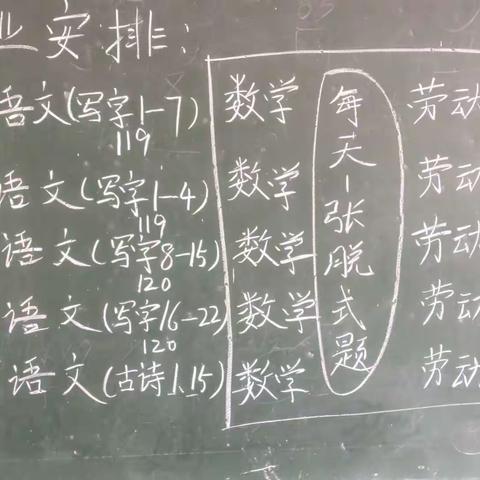 业安排:
语文(写字1-7) 数学 劳动
119
语文(写字1-4) 数学 劳动
119
语文(写字8-15) 数学 劳动
120
语文(写字16-22) 数学 劳动
120
语文(古诗1.15) 数学 劳动
每天一张脱式题